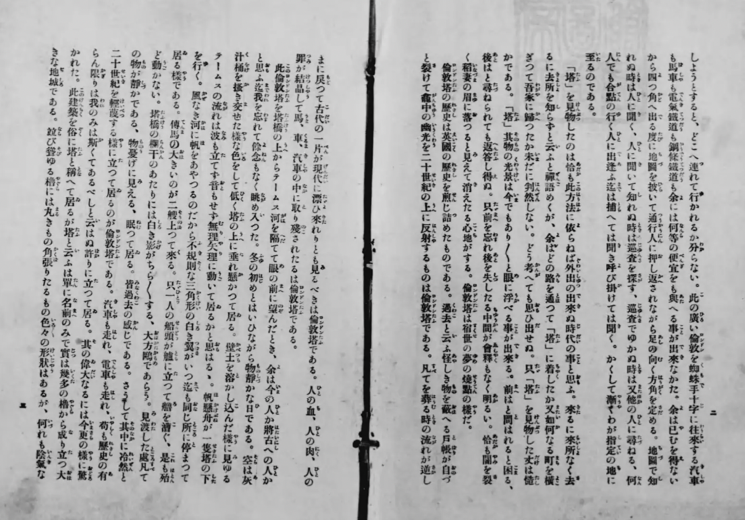 しようとすると、どこへ連れて行かれるか分らない。此の廣い倫敦を蜘蛛手十字に往來する汽車
も馬車も電氣鐵道も鋼條鐵道も余には何等の便宜をも與へる事が出來なかつた。余は已むを得ない
から四つ角へ出る度に地圖を披いて通行人に押し返されながら足の向く方角を定める。地圖で知
れぬ時は人に聞く、人に聞いて知れぬ時は巡査を探す、巡査でゆかぬ時は又他の人に尋ねる、何
人でも合點の行く人に出逢ふ迄は捕へては聞き呼び掛けては聞く。かくして漸くわが指定の地に
至るのである。
「塔」を見物したのは恰も此方法に依らねば外出の出來ぬ時代の事と思ふ。來るに來所なく去
るに去所を知らずと云ふと禪語めくが、余はどの路を通つて「塔」に着したか又如何なる町を横
ぎつて吾家に歸つたか未だに判然しない。どう考へても思ひ出せぬ。只「塔」を見物した丈は慥
かである。「塔」其物の光景は今でもあり〳〵と眼に浮べる事が出來る。前はと問はれると困る、
後はと尋ねられても返答し得ぬ。只前を忘れ後を失したる中間が會釋もなく明るい。恰も闇を裂
く稻妻の眉に落つると見えて消えたる心地がする。倫敦塔は宿世の夢の燒點の樣だ。
倫敦塔の歷史は英國の歷史を煎じ詰めたものである。過去と云ふ怪しき物を蔽へる戸帳が自づ
と裂けて龕中の幽光を二十世紀の上に反射するものは倫敦塔である。凡てを葬る時の流れが逆し
二
まに戻つて古代の一片が現代に漂ひ來れりとも見るべきは倫敦塔である。人の血、人の肉、人の
罪が結晶して馬、車、汽車の中に取り殘されたるは倫敦塔である。
此倫敦塔を塔橋の上からテームス河を隔てて眼の前に望んだとき、余は今の人か將た古への人か
と思ふ迄我を忘れて餘念もなく眺め入つた。冬の初めとはいひながら物靜かな日である。空は灰
汁桶を掻き交ぜた樣な色をして低く塔の上に垂れ懸つて居る。壁土を溶かし込んだ樣に見ゆる
テームスの流れは波も立てず音もせず無理矢理に動いて居るかと思はるゝ。帆懸舟が一隻塔の下
を行く。風なき河に帆をあやつるのだから不規則な三角形の白き翼がいつ迄も同じ所に停まつて
居る樣である。傳馬の大きいのが二艘上つて來る。只一人の船頭が艫に立つて艪を漕ぐ、是も殆
ど動かない。塔橋の欄干のあたりには白き影がちら〳〵する、大方鷗であらう。見渡した處凡て
の物が靜かである、物憂げに見える、眠つて居る、皆過去の感じである。さうして其中に冷然と
二十世紀を輕蔑する樣に立つて居るのが倫敦塔である。汽車も走れ、電車も走れ、苟も歷史の有
らん限りは我のみは斯くてあるべしと云はぬ許りに立つて居る。其の偉大なるには今更の樣に驚
かれた。此建築を俗に塔と稱へて居るが塔と云ふは單に名前のみで實は幾多の櫓から成り立つ大
きな地城である。竝び聳ゆる櫓には丸きもの角張りたるもの色々の形狀はあるが、何れも陰氣な
三